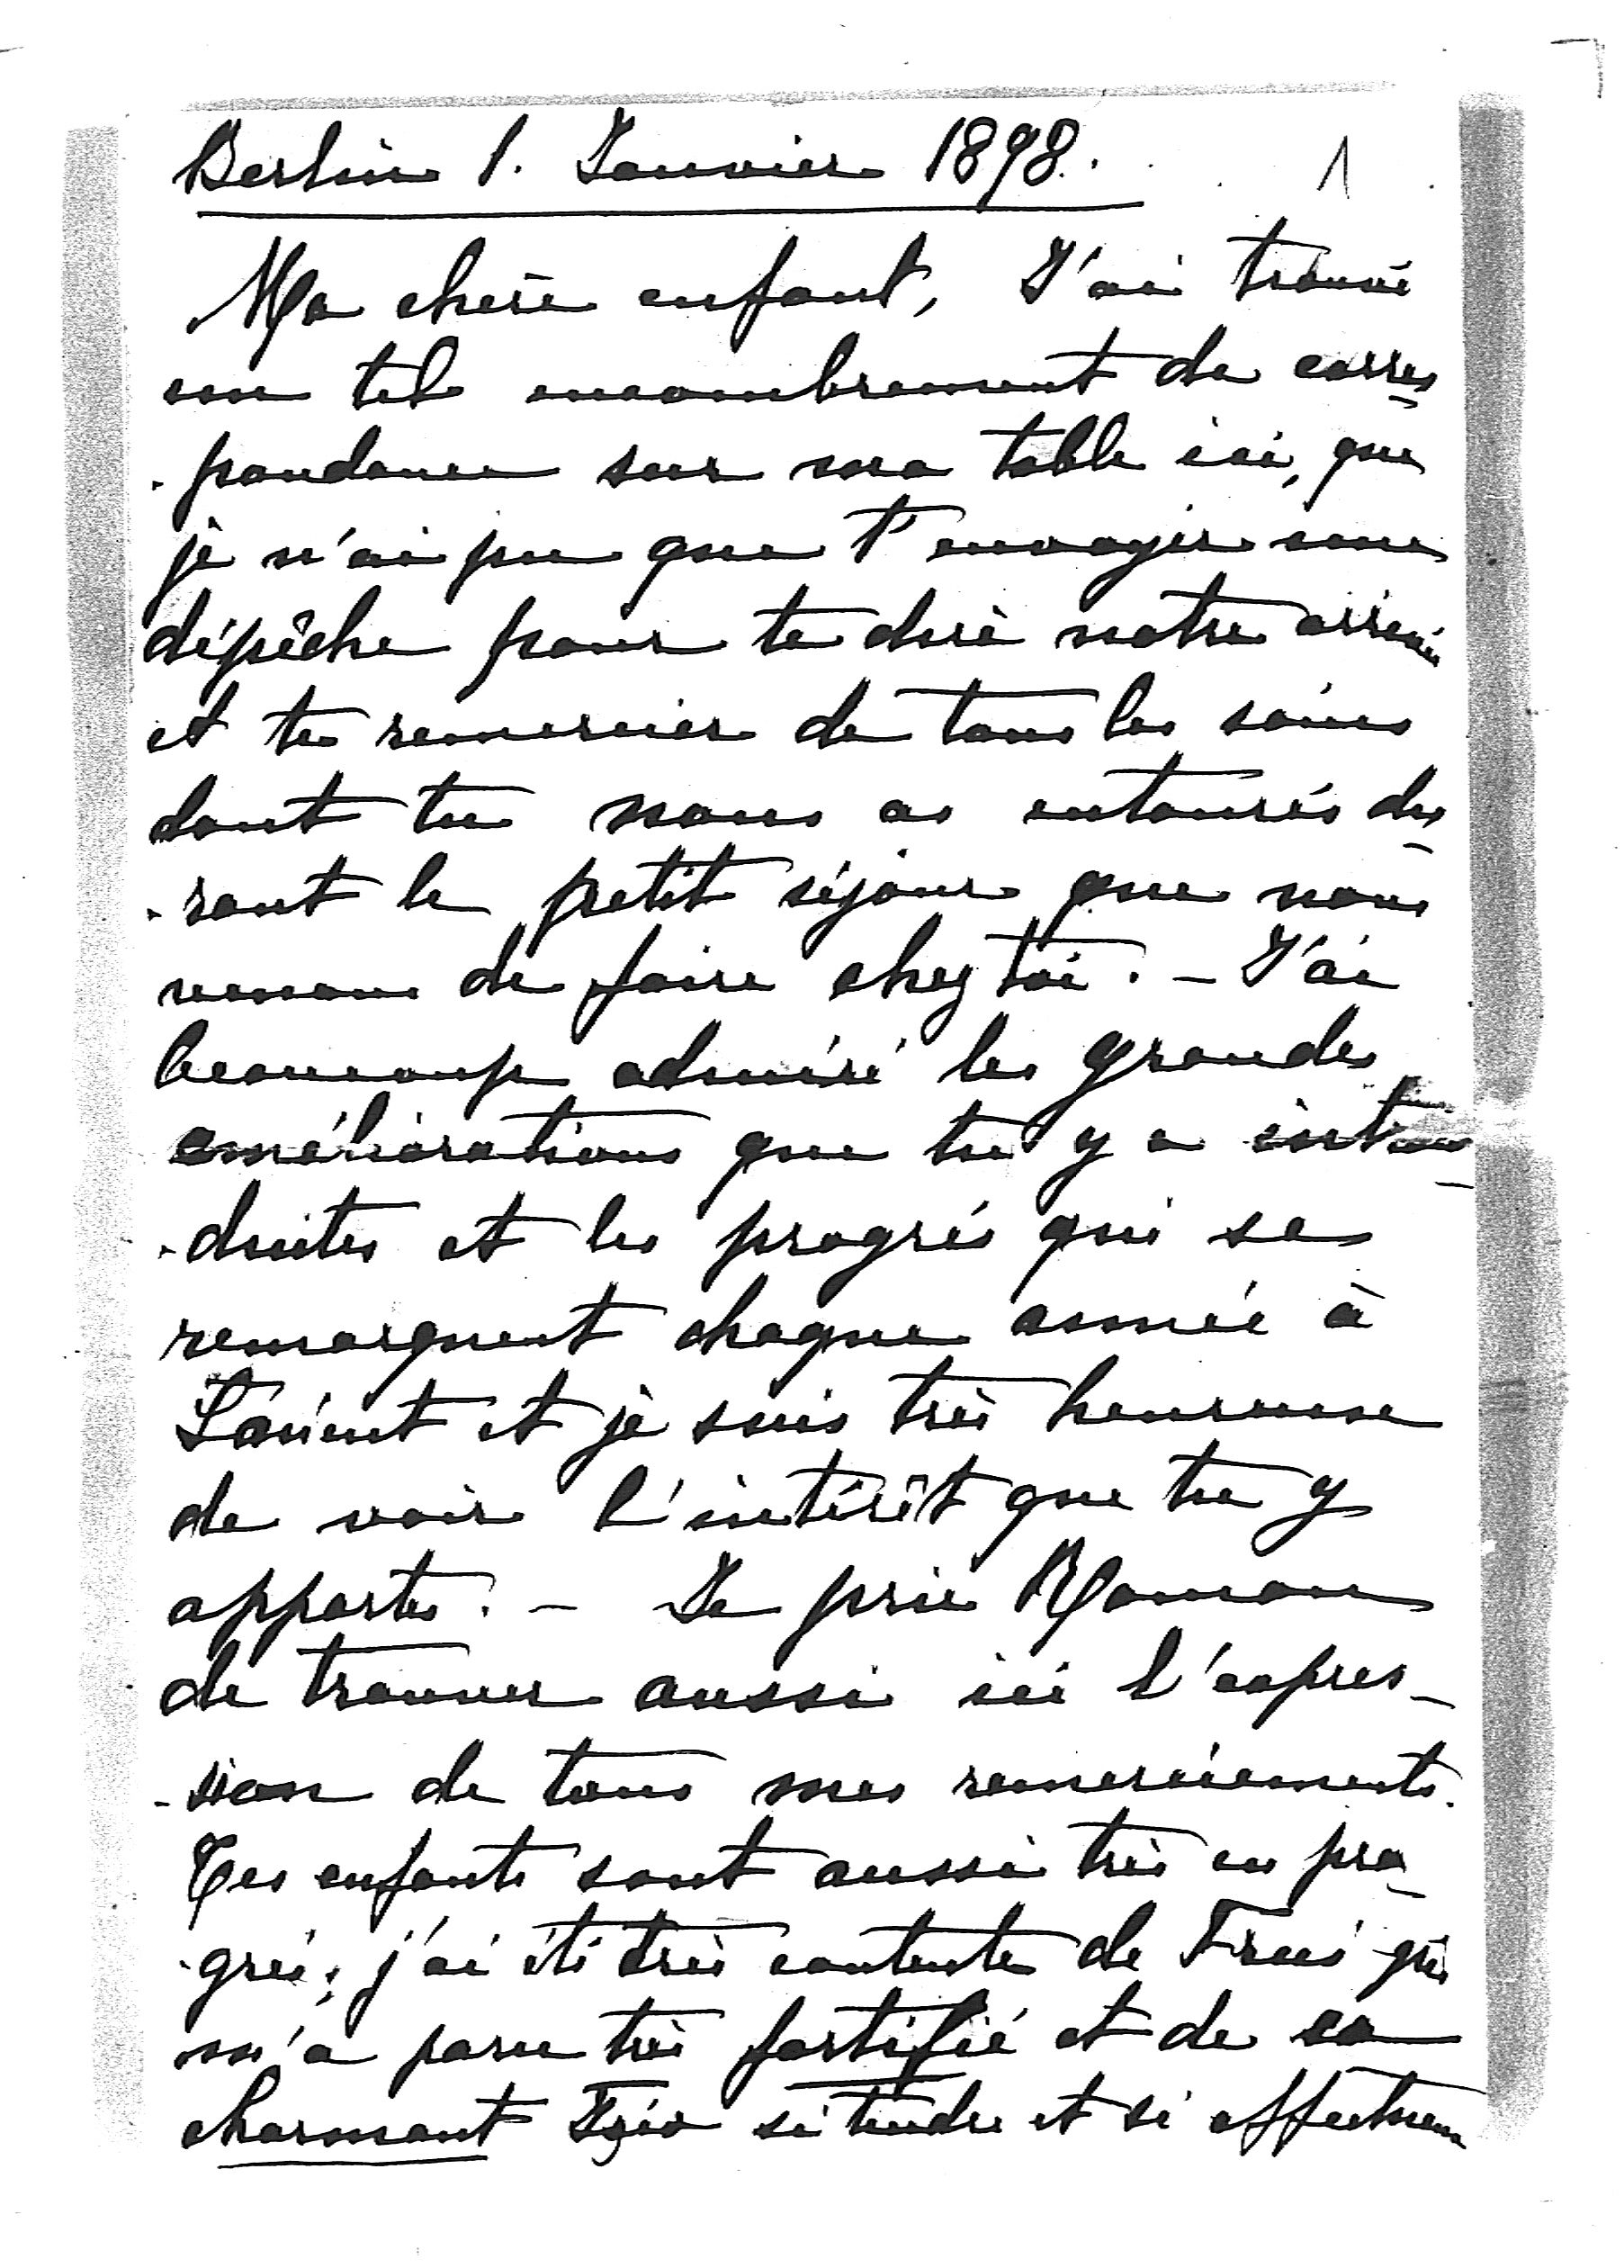 Berlin 1. Janvier 1898. 1
Ma chère enfant, J'ai trouvé
un tel encombrement de corres
-pondance sur ma table ici, que
je n'ai pu que t'envoyer une
dépêche pour te dire notre arrivée
et te remercier de tous les soins
dont tu nous as entourés du
-rant le petit séjour que nous
venons de faire chez toi. - J'ai
beaucoup admiré les grandes
améliorations que tu y a intro
-duites et les progrès qui se
remarquent chaque année à
Łańcut et je suis très heureuse
de voir l'intérêt que tu y
apportes. - Je prie Roman
de trouver aussi ici l'expres-
-sion de tous mes remerciements.
Tes enfants sont aussi très en pro
-grès; j'ai été très contente de qui
m'a paru très fortifié et de ce
charmant si tendre et si affectueux